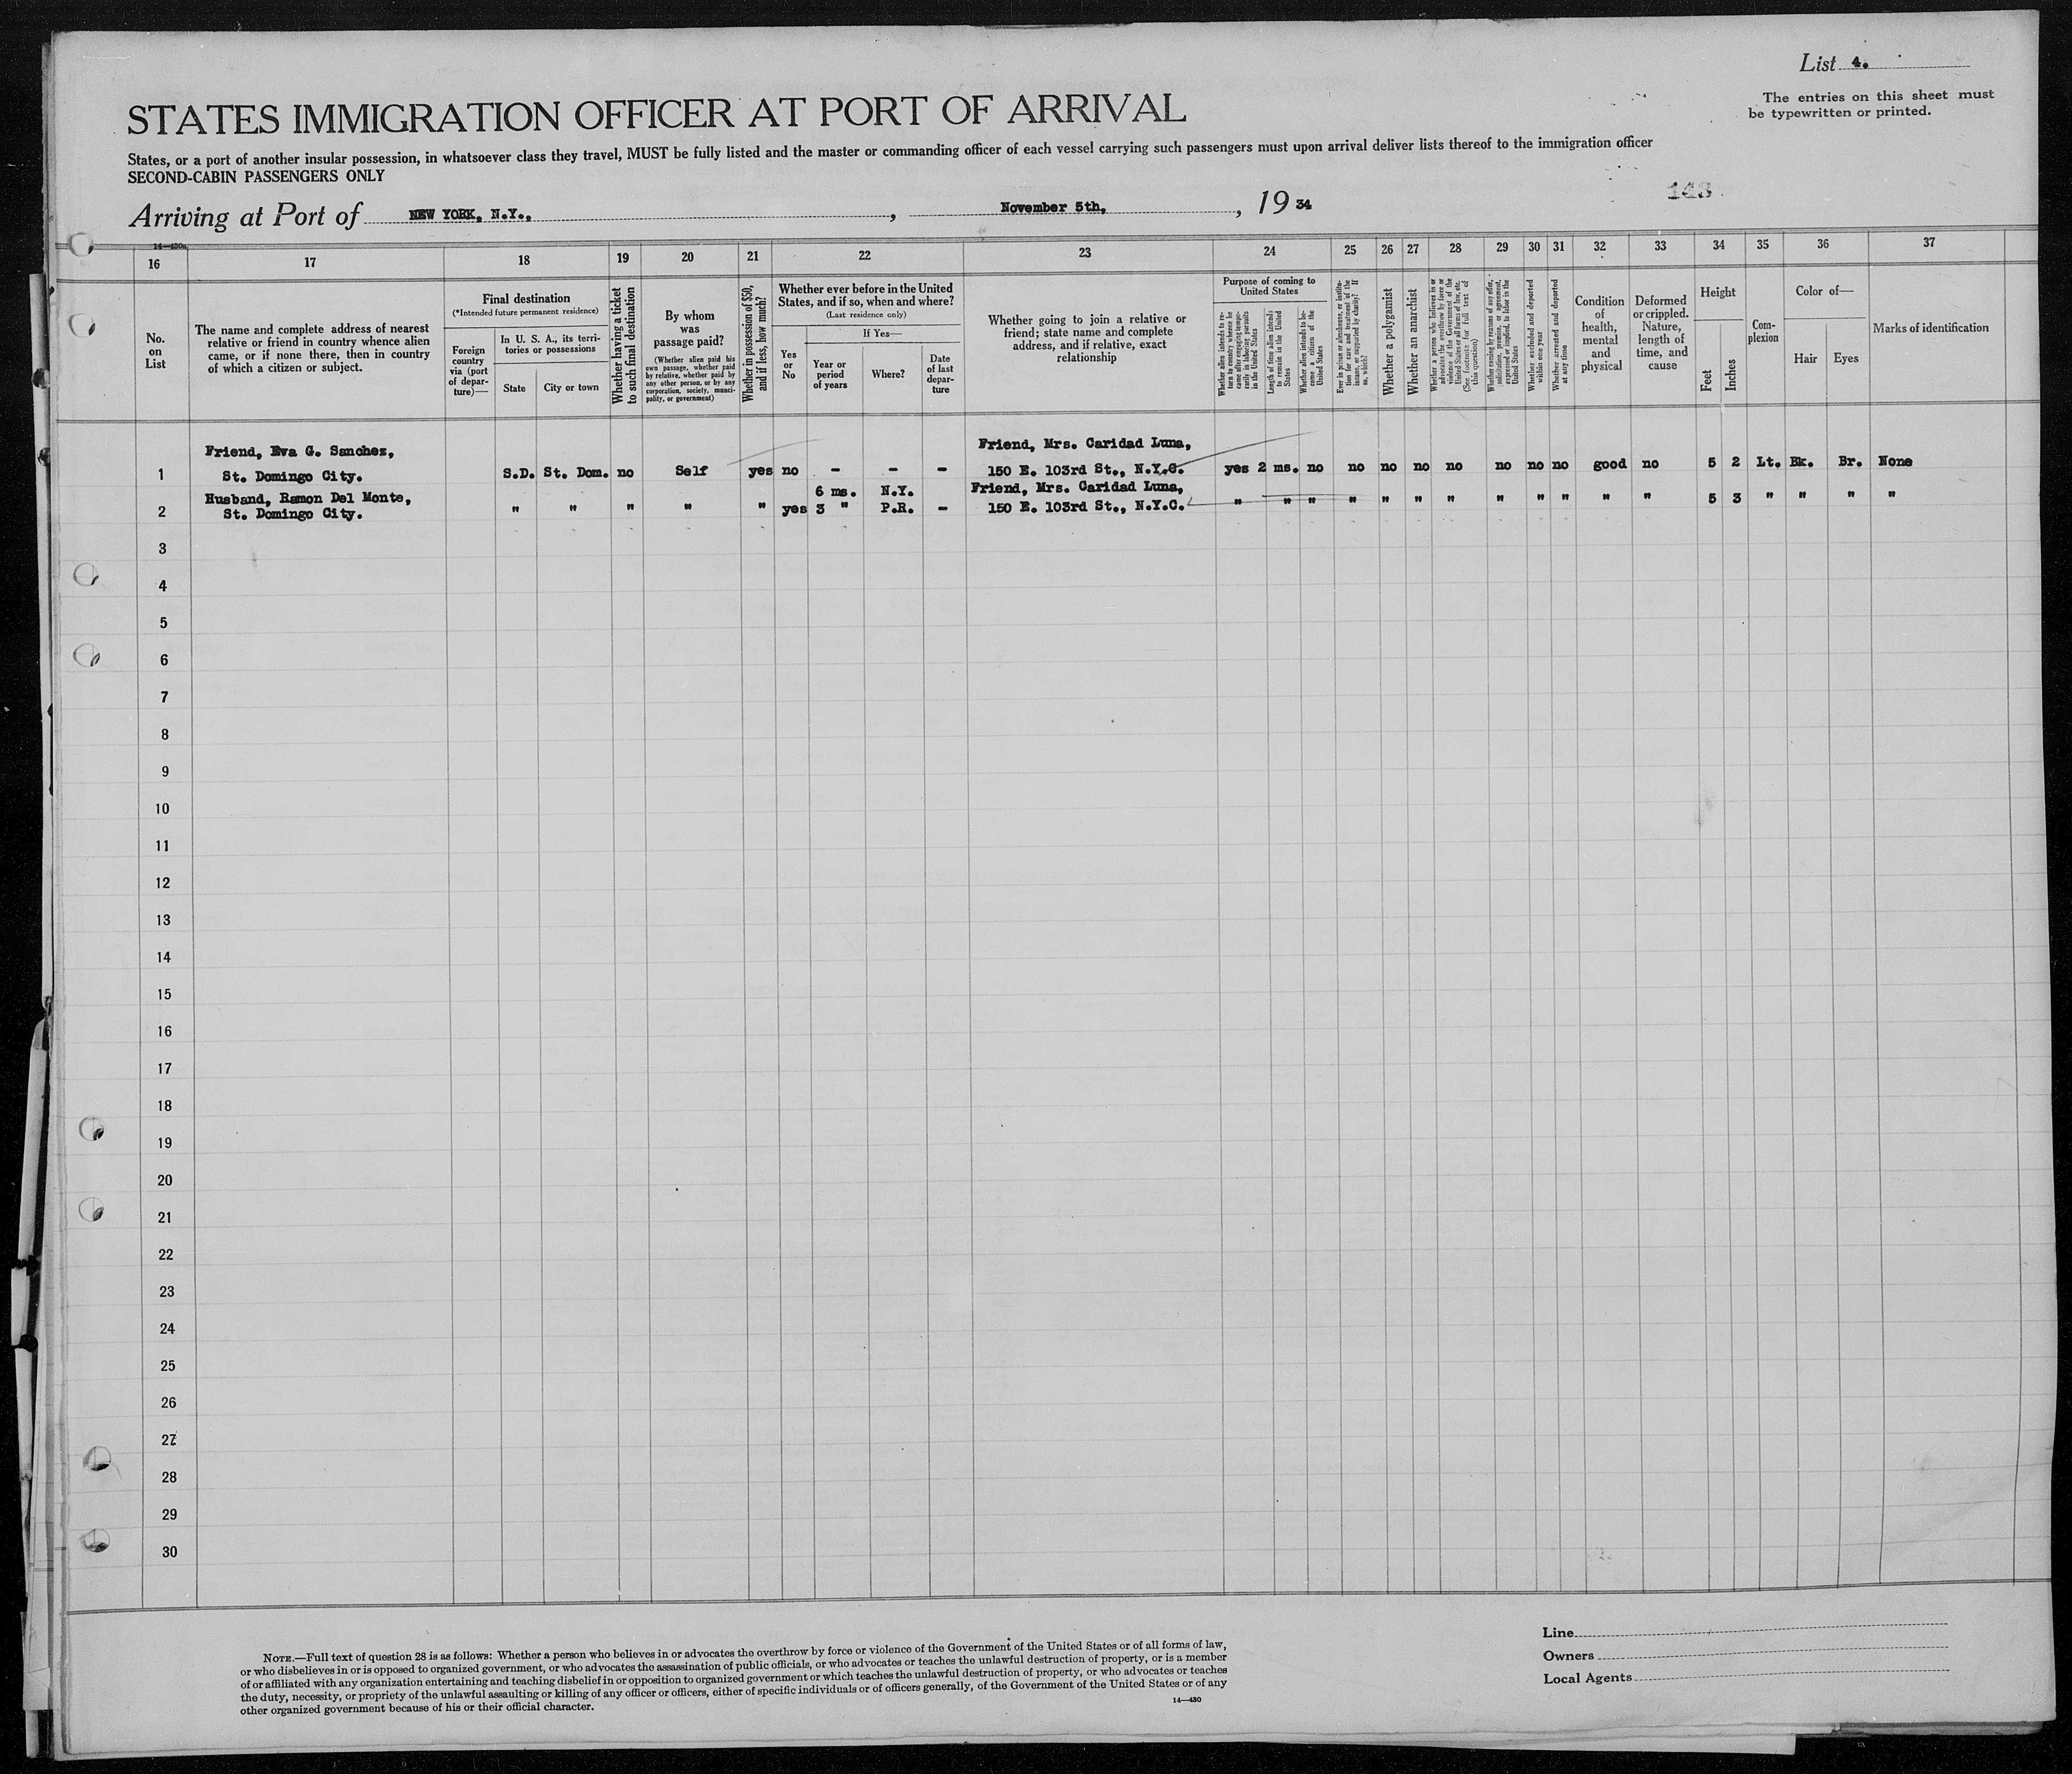 List 4.
The entries on this sheet must
be typewritten or printed.
STATES IMMIGRATION OFFICER AT PORT OF ARRIVAL
States, or a port of another insular possession, in whatsoever class they travel, MUST be fully listed and the master or commanding officer of each vessel carrying such passengers must upon arrival deliver lists thereof to the immigration officer
SECOND-CABIN PASSENGERS ONLY
143
Arriving at Port of NEW YORK, N.Y., , November 5th, , 19 34
14—430a
16 17 18 19 20 21 22 23 24 25 26 27 28 29 30 31 32 33 34 35 36 37
No.
on
List
The name and complete address of nearest
relative or friend in country whence alien
came, or if none there, then in country
of which a citizen or subject.
Final destination
(*Intended future permanent residence)
Foreign
country
via (port
of depar-
ture)—
In U. S. A., its terri-
tories or possessions
State
City or town
Whether having a ticket
to such final destination
By whom
was
passage paid?
(Whether alien paid his
own passage, whether paid
by relative, whether paid by
any other person, or by any
corporation, society, munici-
pality, or government)
Whether in possession of $50,
and if less, how much?
Whether ever before in the United
States, and if so, when and where?
(Last residence only)
Yes
or
No
If Yes—
Year or
period
of years
Where?
Date
of last
depar-
ture
Whether going to join a relative or
friend; state name and complete
address, and if relative, exact
relationship
Purpose of coming to
United States
Whether alien intends to re-
turn to country whence he
came after engaging tempo-
rarily in laboring pursuits
in the United States
Length of time alien intends
to remain in the United
States
Whether alien intends to be-
come a citizen of the
United States
Ever in prison or almshouse, or institu-
tion for care and treatment of the
insane, or supported by charity? If
so, which?
Whether a polygamist
Whether an anarchist
Whether a person who believes in or
advocates the overthrow by force or
violence of the Government of the
United States or all forms of law, etc.
(See footnote for full text of
this question)
Whether coming by reasons of any offer,
solicitation, promise, or agreement,
expressed or implied, to labor in the
United States
Whether excluded and deported
within one year
Whether arrested and deported
at any time
Condition
of
health,
mental
and
physical
Deformed
or crippled.
Nature,
length of
time, and
cause
Height
Feet
Inches
Com-
plexion
Color of—
Hair
Eyes
Marks of identification
Friend, Eva G. Sanchez, Friend, Mrs. Caridad Luna,
1 St. Domingo City. S.D. St. Dom. no Self yes no - - - 150 E. 103rd St., N.Y.C. yes 2 ms. no no no no no no no no good no 5 2 Lt. Bk. Br. None
Husband, Ramon Del Monte, 6 ms. N.Y. Friend, Mrs. Caridad Luna,
2 St. Domingo City. " " " " " yes 3 " P.R. - 150 E. 103rd St., N.Y.C. " " " " " " " " " " " " 5 3 " " " "
3
4
5
6
7
8
9
10
11
12
13
14
15
16
17
18
19
20
21
22
23
24
25
26
27
28
29
30
NOTE.—Full text of question 28 is as follows: Whether a person who believes in or advocates the overthrow by force or violence of the Government of the United States or of all forms of law,
or who disbelieves in or is opposed to organized government, or who advocates the assassination of public officials, or who advocates or teaches the unlawful destruction of property, or is a member
of or affiliated with any organization entertaining and teaching disbelief in or opposition to organized government or which teaches the unlawful destruction of property, or who advocates or teaches
the duty, necessity, or propriety of the unlawful assaulting or killing of any officer or officers, either of specific individuals or of officers generally, of the Government of the United States or of any
other organized government because of his or their official character.
14—430
Line
Owners
Local Agents